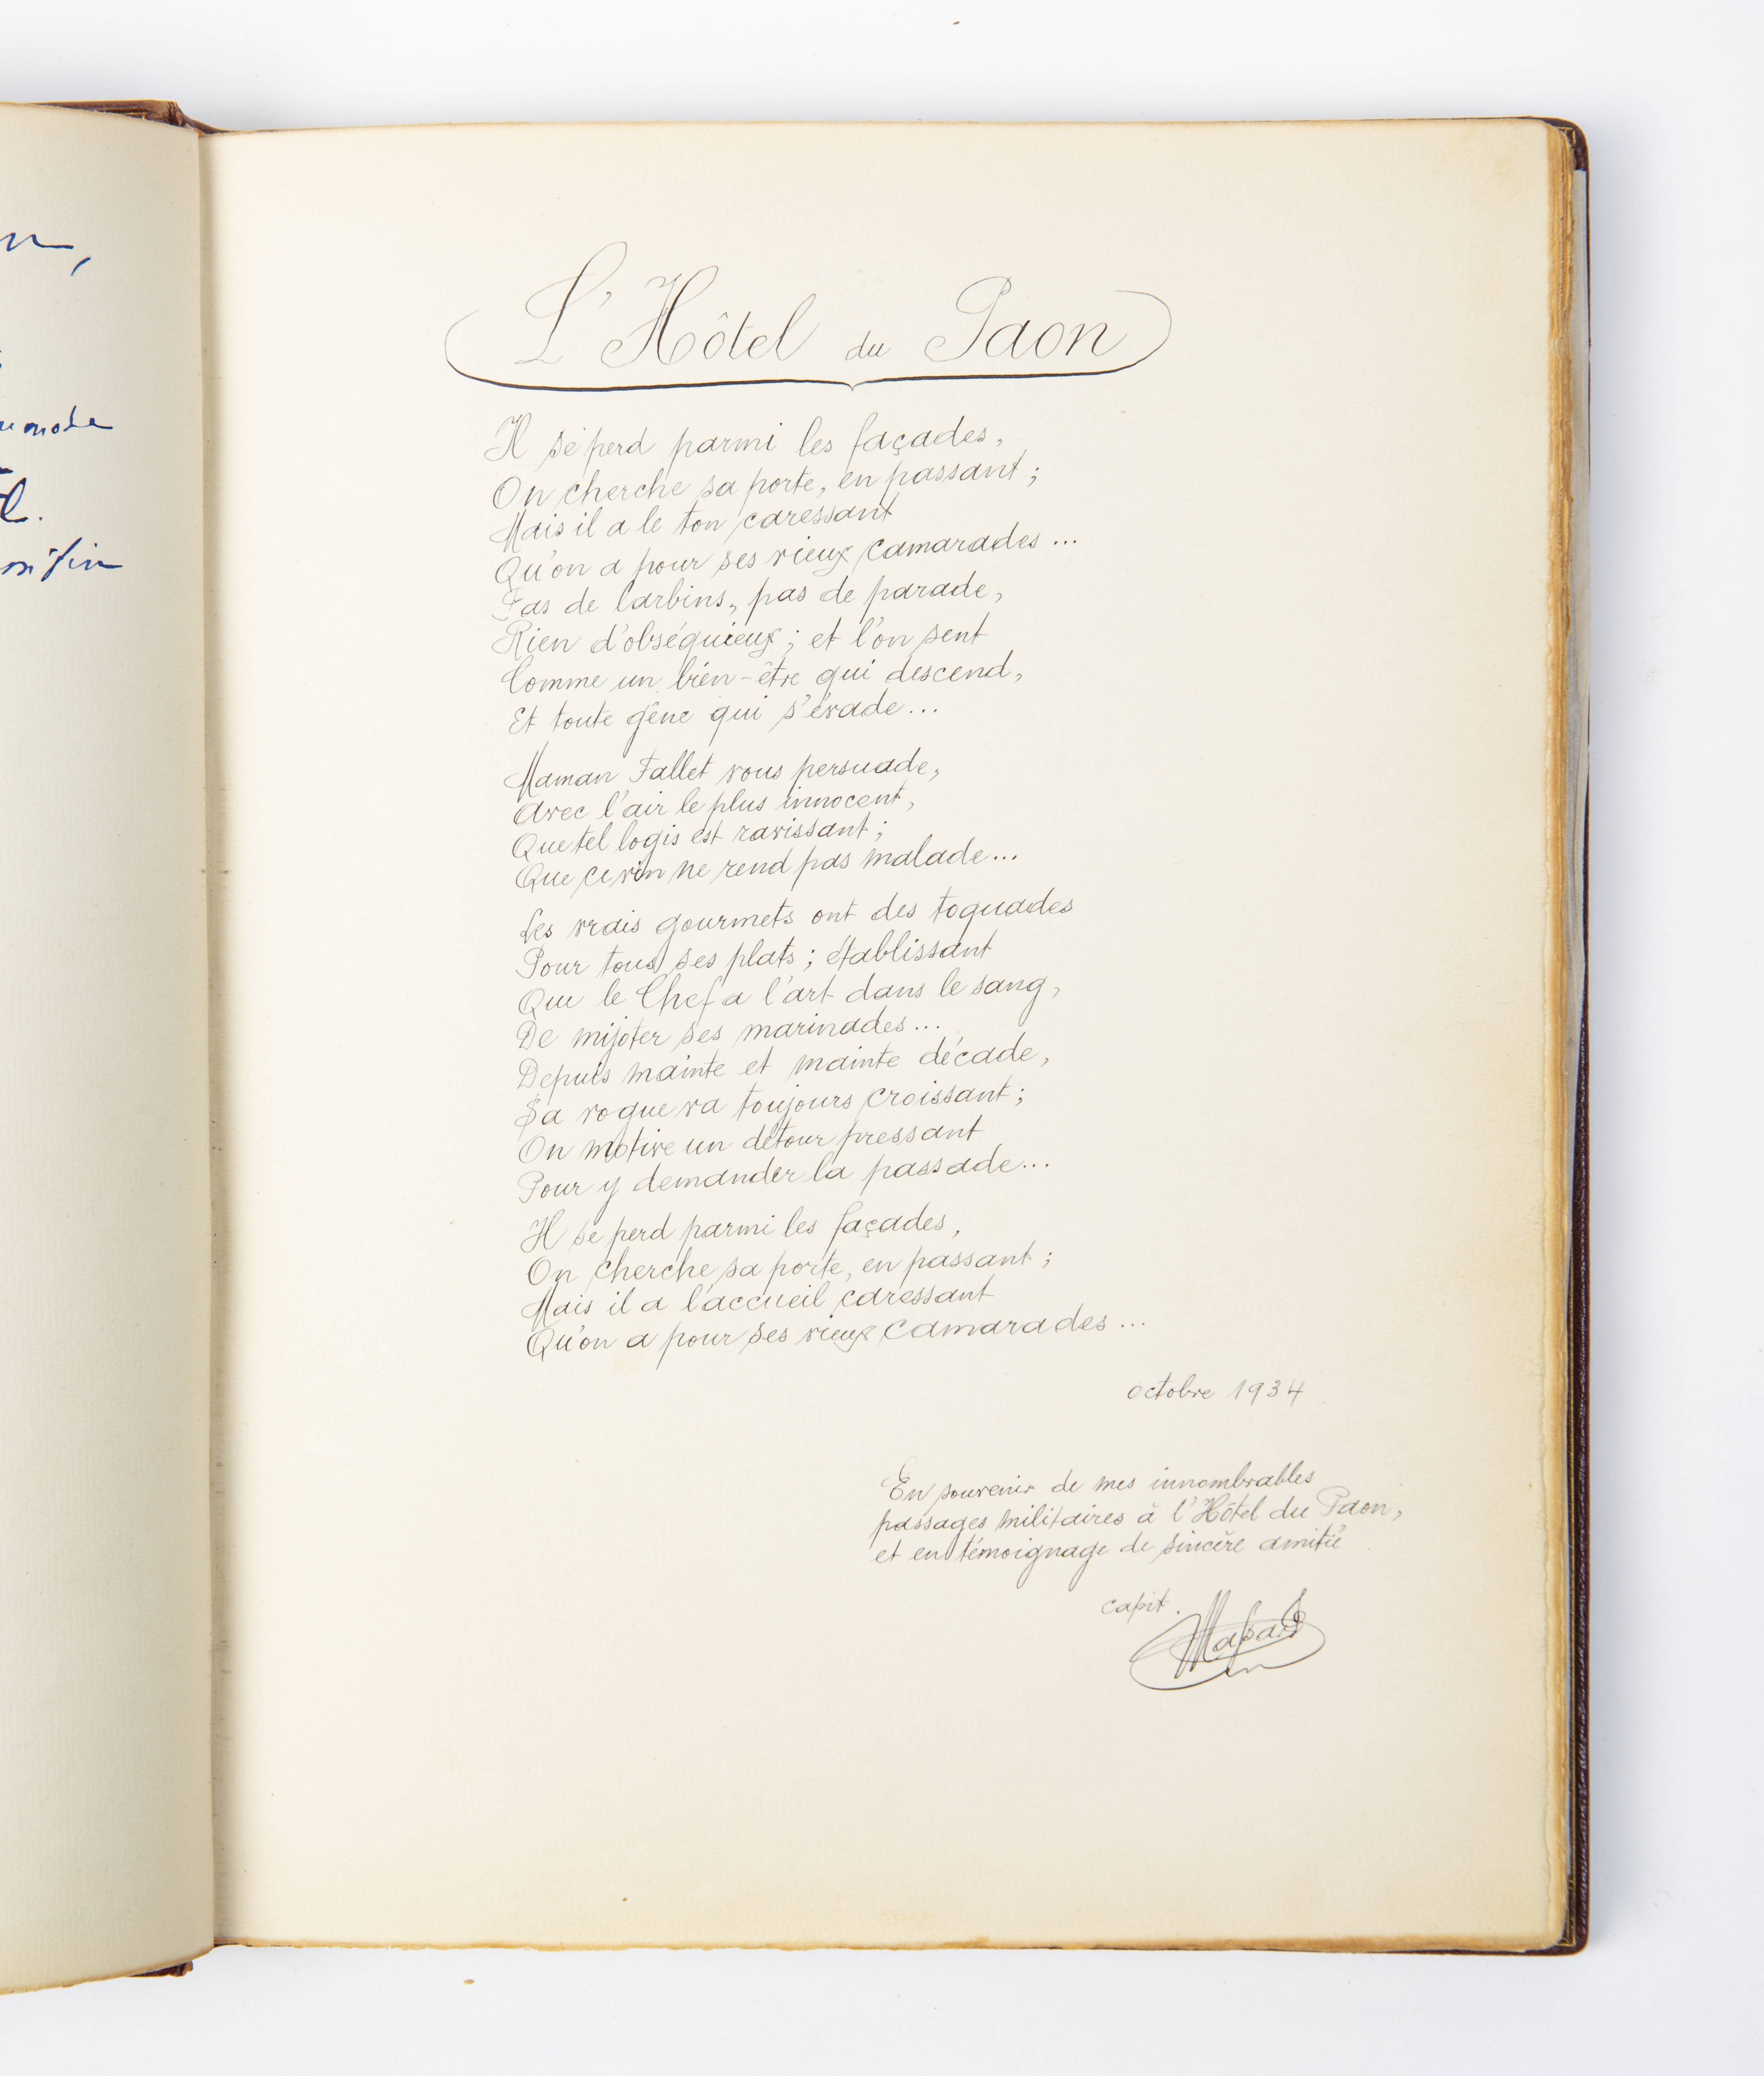 L'Hôtel du Paon
Il se perd parmi les façades,
On cherche sa porte, en passant ;
Mais il a le ton caressant
Qu'on a pour ses vieux camarades ...
Pas de larbins, pas de parade,
Rien d'obséquieux ; et l'on sent
Comme un bien-être qui descend,
Et toute gêne qui s'évade ...
Maman Fallet vous persuade,
Avec l'air le plus innocent,
Que tel logis est ravissant ;
Que ce vin ne rend pas malade ...
Les vrais gourmets ont des toquades
Pour tous ses plats ; établissant
Que le Chef a l'art dans le sang,
De mijoter ses marinades ...
Depuis mainte et mainte décade,
Sa vogue va toujours croissant ;
On motive un détour pressant
Pour y demander la passade ...
Il se perd parmi les façades,
On cherche sa porte, en passant ;
Mais il a l'accueil caressant
Qu'on a pour ses vieux camarades ...
octobre 1934
En souvenir de mes innombrables
passages militaires à l'Hôtel du Paon,
et en témoignage de sincère amitié
capit.